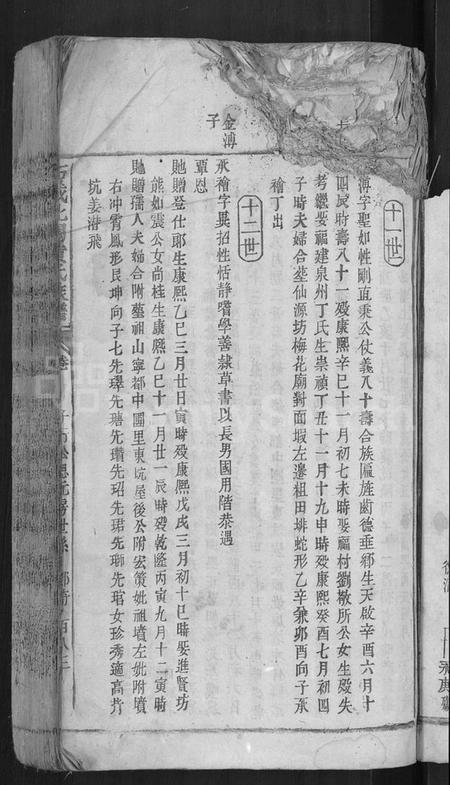 十一世
溥字聖如性剛直秉公仗義八十壽合族匾旌齒德垂鄉生天啟辛酉六月十
四辰時壽八十一歿康熙辛巳十一月初七未時娶福村劉敬所公女生歿失
考繼娶福建泉州丁氏生崇禎丁丑十一月十九申時歿康熙癸酉七月初四
子時夫婦合塟仙源坊梅花廟對面塅左邊祖田排蛇形乙辛兼卯酉向子承
檜丁出
十二世
金溥
子
承檜字異招性恬靜嗜學善隸草書以長男國用階恭遇
覃恩
貤贈登仕郎生康熙乙巳三月廿日寅時歿康熙戊戌三月初十巳時娶進賢坊
熊如震公女尚桂生康熙乙巳十一月廿一辰時歿乾隆丙寅九月十二寅時
貤贈孺人夫婦合附塟祖山寧都中團里東坑屋後公附宏策妣祖墳左妣附墳
右冲霄鳳形艮坤向子七先琿先瑭先瓚先玿先珺先瑯先琯女珍秀適高背
坑姜潜飛